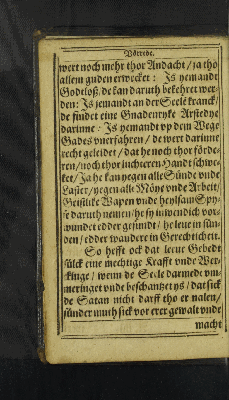 Vörrede.
wert noch mehr thor Andacht / ja tho
allem guden erwecket : Js yemandt
Godeloß / de kan daruth bekehret wer-
den: Js yemandt an der Seele kranck /
de findet eine Gnadenryke Arstedye
darinne : Js yemandt vp dem Wege
Gades vnerfahren / de wert darinne
recht geleidet / dat he noch thor förde-
ren / noch thor luchteren Handt schwe-
ket / Ja he kan yegen alle Sünde vnde
Laster / yegen alle Möye vnde Arbeit /
Geistlike Wapen vnde heylsam Spy-
se daruth nemen / he sy inwendich vor-
wundet edder gesundt / he leue in sün-
den / edder wandere in Gerechticheit.
So hefft ock dat leeue Gebedt
sülck eine mechtige Krafft vnde Wer-
kinge / wenn de Seele darmede vm-
meringet vnde beschantzet ys / dat sick
de Satan nicht darff tho er nalen /
sünder muth sick vor erer gewalt vnde
macht